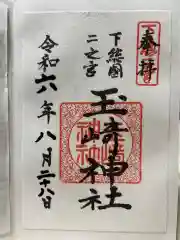 奉拝
下総國
二之宮
玉崎神社
令和六年八月二十八日